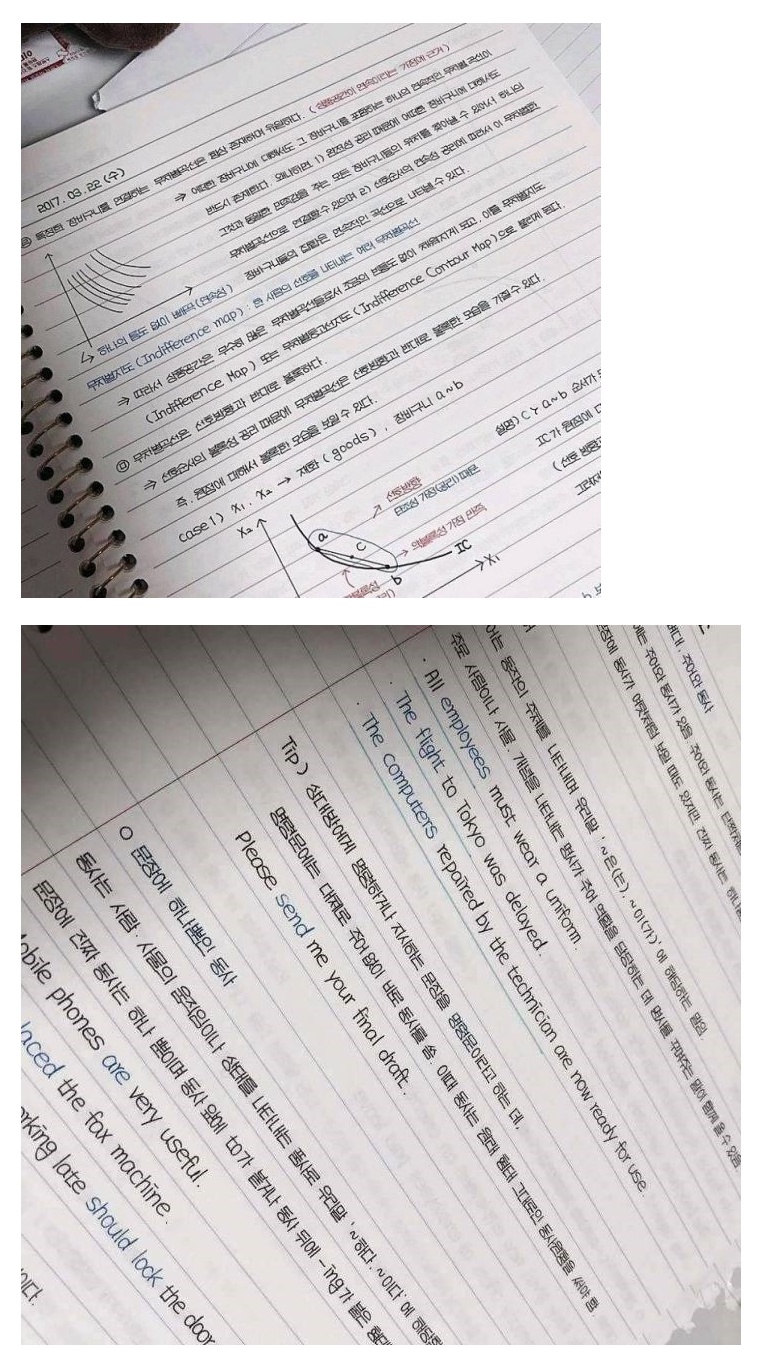 2017. 03. 22 (수)
특정한 장바구니를 연결하는 무차별곡선은 항상 존재하며 유일하다. (상품공간이 연속이라는 가정에 근거)
⇒ 어떠한 장바구니에 대해서도 그 장바구니를 포함하는 하나의 연속적인 무차별 곡선이
반드시 존재한다. 왜냐하면 1) 완전성 공리 때문에 어떠한 장바구니에 대해서도
그것과 동일한 만족감을 주는 모든 장바구니들의 위치를 찾아낼 수 있어서 하나의
무차별곡선으로 연결할 수 있으며 2) 선호순서의 연속성 공리에 따라서 이 무차별한
장바구니들의 집합은 연속적인 곡선으로 나타낼 수 있다.
↳ 하나의 틈도 없이 빼곡 (연속성)
무차별지도 (Indifference map) : 한 사람의 선호를 나타내는 여러 무차별곡선
⇒ 따라서 상품공간은 무수히 많은 무차별곡선들로서 조금의 빈틈도 없이 채워지게 되고, 이를 무차별지도
(Indifference Map) 또는 무차별등고선지도 (Indifference Contour Map)으로 불리게 된다.
ⓜ 무차별곡선은 선호방향과 반대로 볼록하다.
⇒ 선호순서의 볼록성 공리 때문에 무차별곡선은 선호방향과 반대로 볼록한 모습을 가질 수 있다.
즉, 원점에 대해서 볼록한 모습을 보일 수 있다.
case 1) x₁, x₂ → 재화 (goods), 장바구니 a~b
설명) C ≻ a~b 순서가
IC가 원점에
(선호 방향
선호방향
단조성 가정(공리) 때문
약볼록성 가정 만족
X₂
a
c
b
IC
X₁
주어와 동사
문장에 동사가 여럿처럼 보일 때도 있지만 진짜 동사는 하나
주어는 동작의 주체를 나타내며 우리말 '~은(는), ~이(가)' 에 해당하는 말임.
주로 사람이나 사물, 개념을 나타내는 명사가 주어 역할을 담당하는 데 명사를 꾸며주는 말이 함께 올 수 있음
· All employees must wear a uniform.
· The flight to Tokyo was delayed.
· The computers repaired by the technician are now ready for use.
Tip) 상대방에게 명령하거나 지시하는 문장을 명령문이라고 하는 데,
명령문에는 대체로 주어 없이 바로 동사를 씀. 이때 동사는 원래 형태 그대로인 동사원형을 써야 함.
Please send me your final draft.
○ 문장에 하나뿐인 동사
동사는 사람·사물의 움직임이나 상태를 나타내는 품사로 우리말 '~하다, ~이다' 에 해당
문장에 진짜 동사는 하나 뿐이며 동사 앞에 to가 붙거나 동사 뒤에 -ing가 붙은 형태
Mobile phones are very useful.
laced the fax machine.
rking late should lock the door
이다.